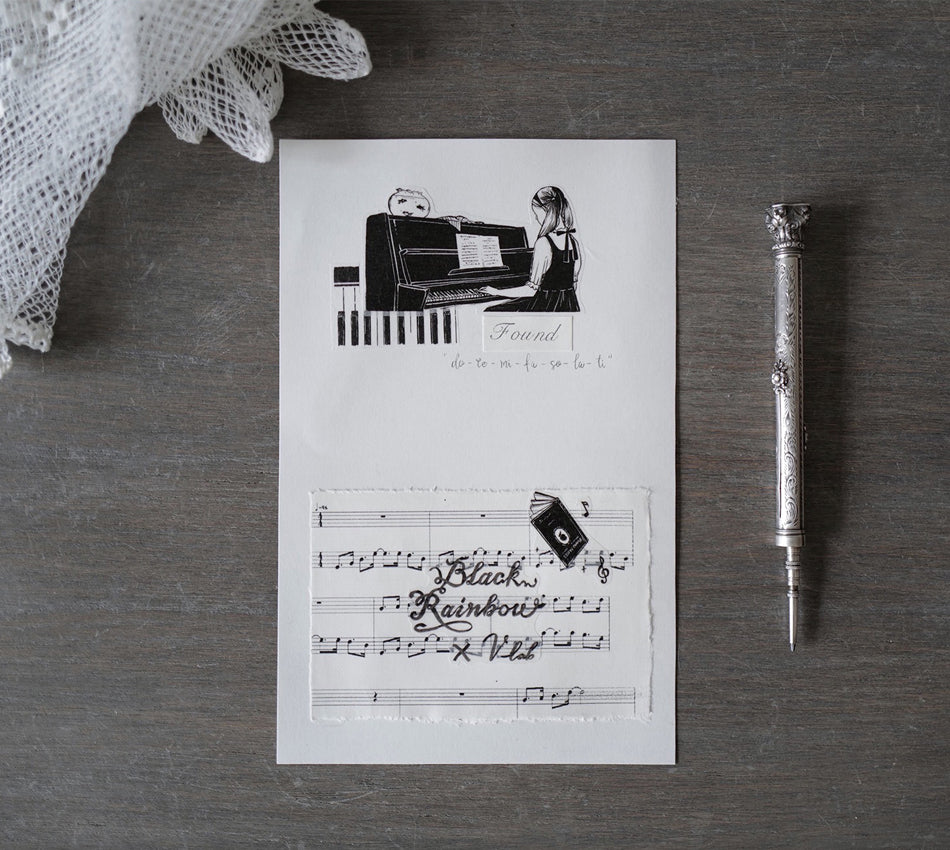 Found
"do-re-mi-fa-so-la-ti"
Black
Rainbow
x Vlab